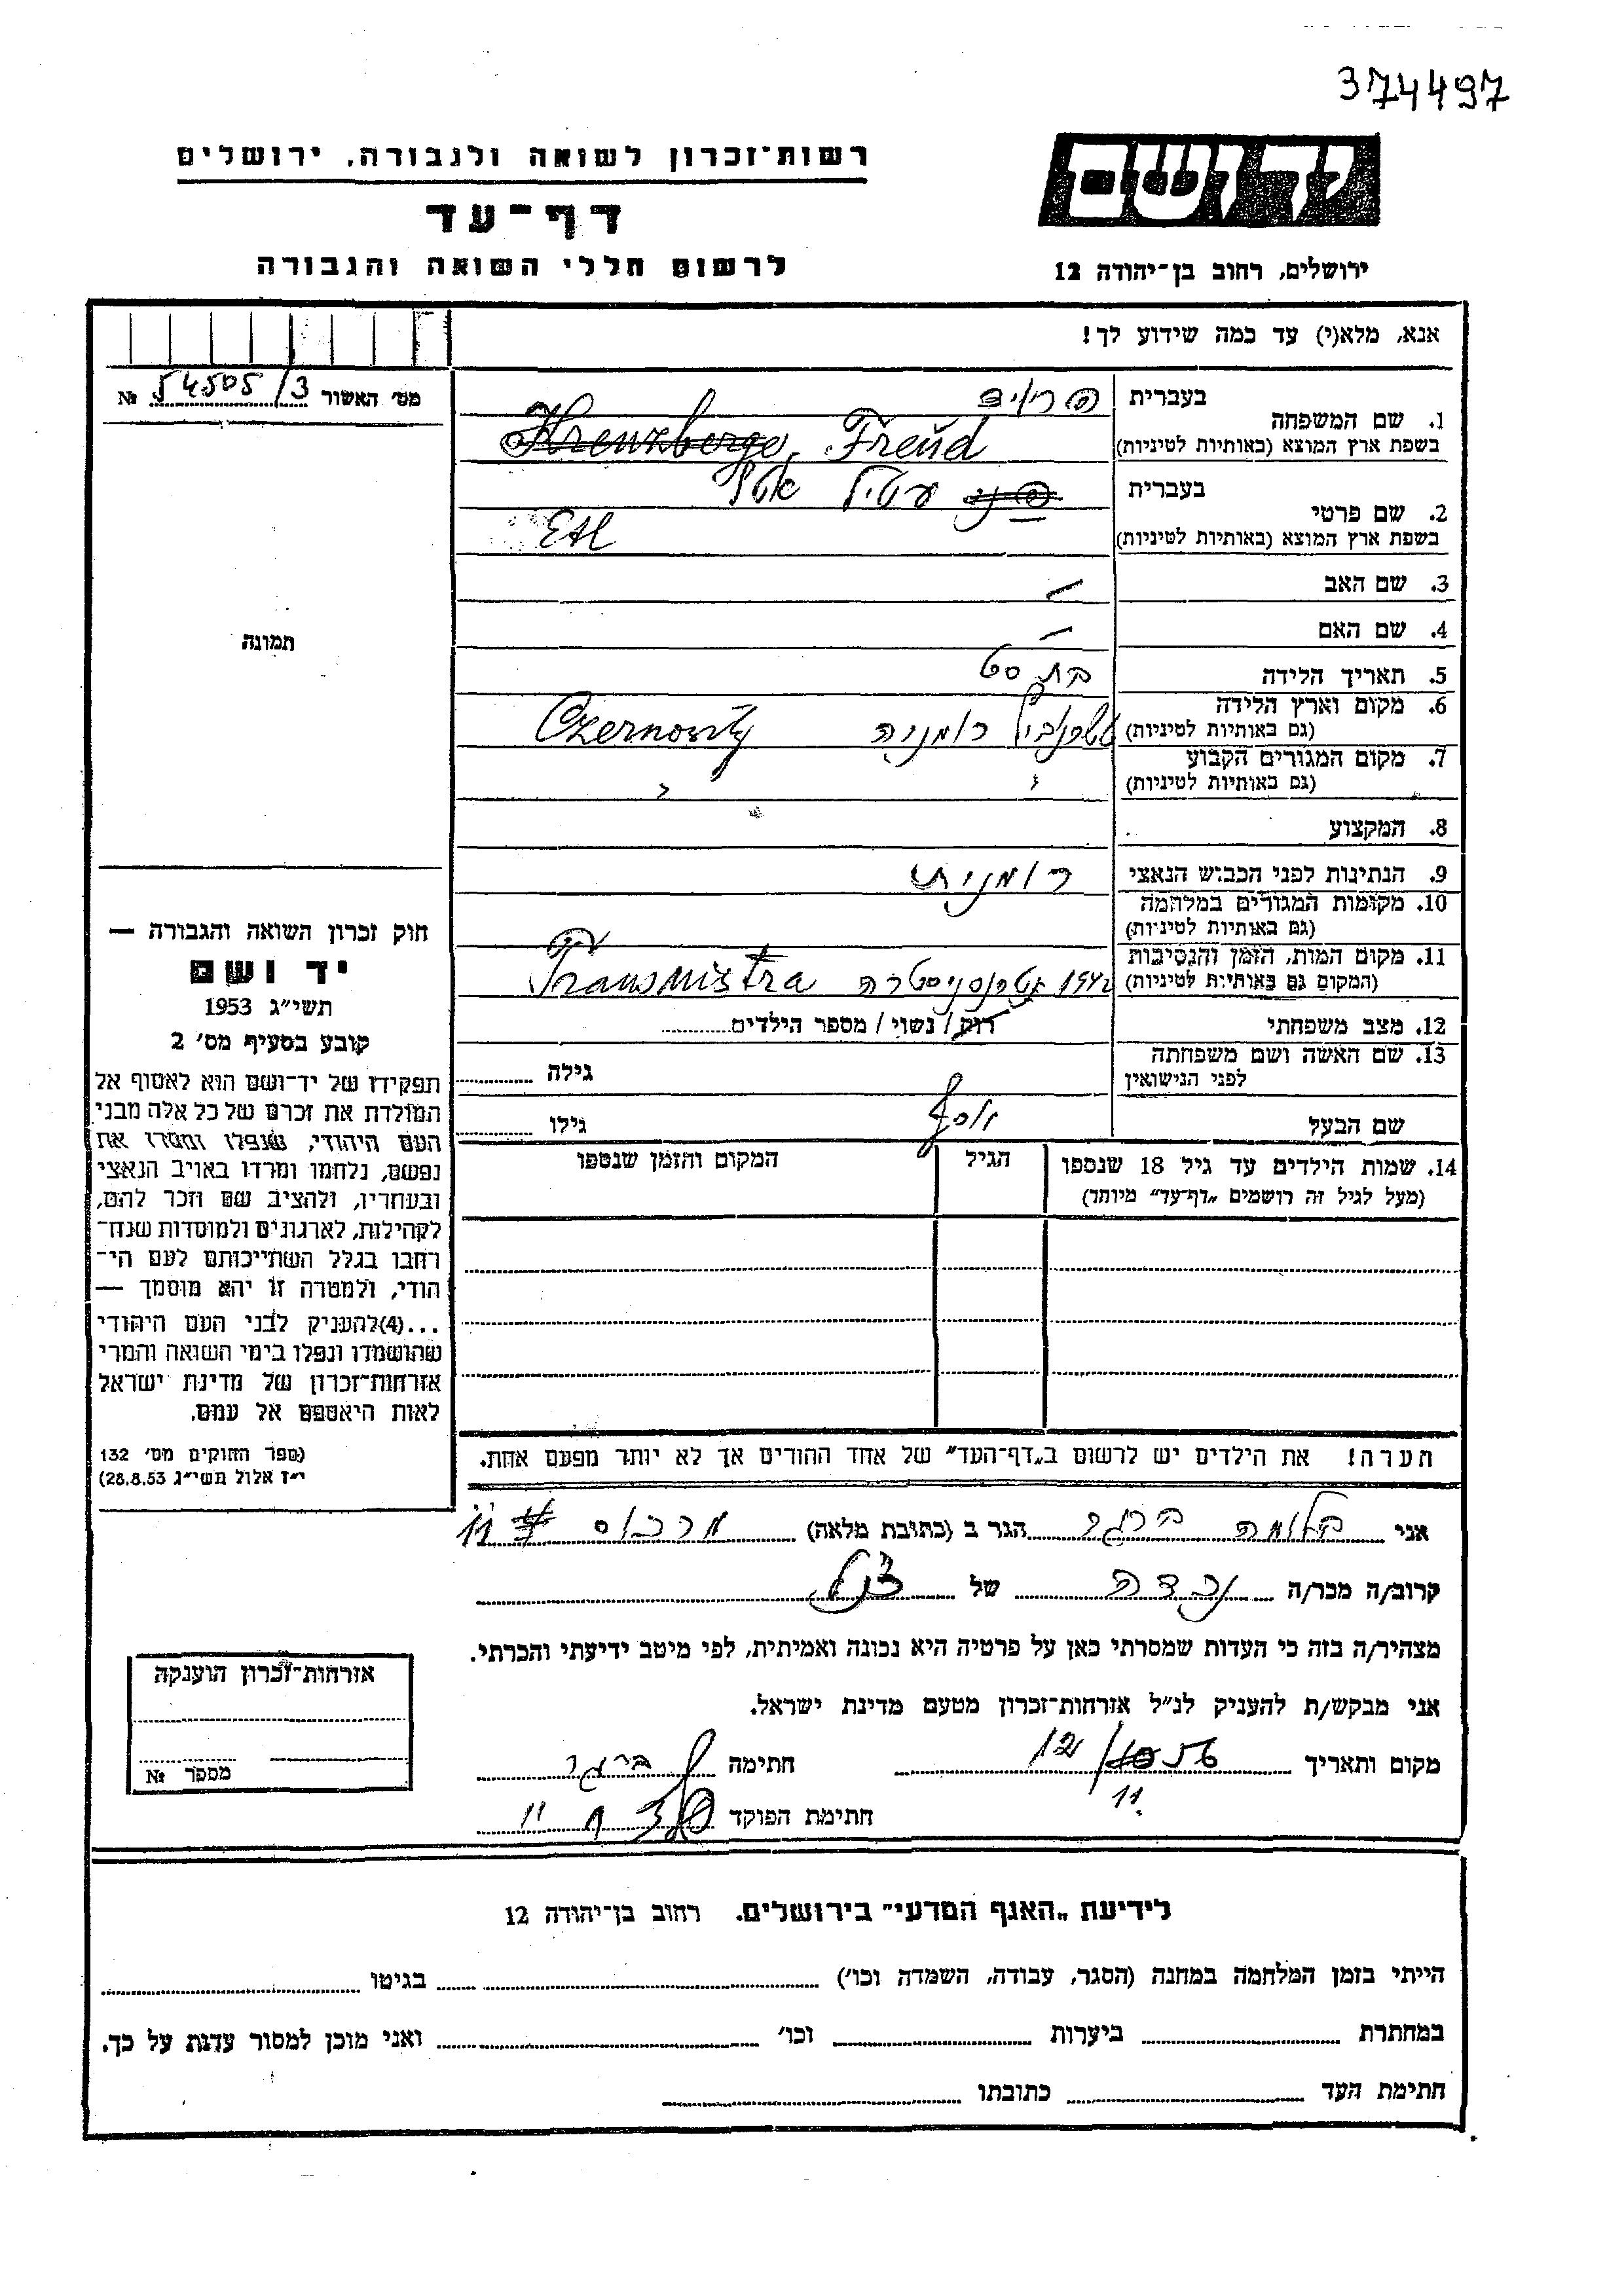 374497
יד ושם
רשות־זכרון לשואה ולגבורה, ירושלים
דף־עד
לרשום חללי השואה והגבורה
ירושלים, רחוב בן־יהודה 12
אנא, מלא(י) עד כמה שידוע לך!
מס׳ האשור 54505/3 №
תמונה
1. שם המשפחה
בעברית פרויד
בשפת ארץ המוצא (באותיות לטיניות) Freud
2. שם פרטי
בעברית עטיל אטל
בשפת ארץ המוצא (באותיות לטיניות) Etl
3. שם האב —
4. שם האם —
5. תאריך הלידה
6. מקום וארץ הלידה
(גם באותיות לטיניות) רומניה Czernovitz
7. מקום המגורים הקבוע
(גם באותיות לטיניות) " "
8. המקצוע
9. הנתינות לפני הכבוש הנאצי רומנית
10. מקומות המגורים במלחמה
(גם באותיות לטיניות)
11. מקום המות, הזמן והנסיבות
(המקום גם באותיות לטיניות) 1942 טרנסניסטרה Transnistra
12. מצב משפחתי רוק / נשוי / מספר הילדים
13. שם האשה ושם משפחתה
לפני הנישואין גילה
שם הבעל יוסף גילו
14. שמות הילדים עד גיל 18 שנספו הגיל המקום והזמן שנספו
(מעל לגיל זה רושמים „דף־עד” מיוחד)
חוק זכרון השואה והגבורה —
יד ושם
תשי״ג 1953
קובע בסעיף מס׳ 2
תפקידו של יד־ושם הוא לאסוף אל
המולדת את זכרם של כל אלה מבני
העם היהודי, שנפלו ומסרו את
נפשם, נלחמו ומרדו באויב הנאצי
ובעוזריו, ולהציב שם וזכר להם,
לקהילות, לארגונים ולמוסדות שנח־
רבו בגלל השתייכותם לעם הי־
הודי, ולמטרה זו יהא מוסמך —
...(4)להעניק לבני העם היהודי
שהושמדו ונפלו בימי השואה והמרי
אזרחות־זכרון של מדינת ישראל
לאות היאספם אל עמם.
(ספר החוקים מס׳ 132
י״ז אלול תשי״ג 28.8.53)
הערה! את הילדים יש לרשום ב„דף־העד” של אחד ההורים אך לא יותר מפעם אחת.
אני בלומה ברגר הגר ב (כתובת מלאה) מרכוס 11
קרוב/ה מכר/ה נכדה של
מצהיר/ה בזה כי העדות שמסרתי כאן על פרטיה היא נכונה ואמיתית, לפי מיטב ידיעתי והכרתי.
אני מבקש/ת להעניק לנ״ל אזרחות־זכרון מטעם מדינת ישראל.
מקום ותאריך 12/11 56 חתימה ברגר
חתימת הפוקד
אזרחות־זכרון הוענקה
מספר №
לידיעת „האגף המדעי” בירושלים. רחוב בן־יהודה 12
הייתי בזמן המלחמה במחנה (הסגר, עבודה, השמדה וכו׳) בגיטו
במחתרת ביערות וכו׳ ואני מוכן למסור עדות על כך.
חתימת העד כתובתו